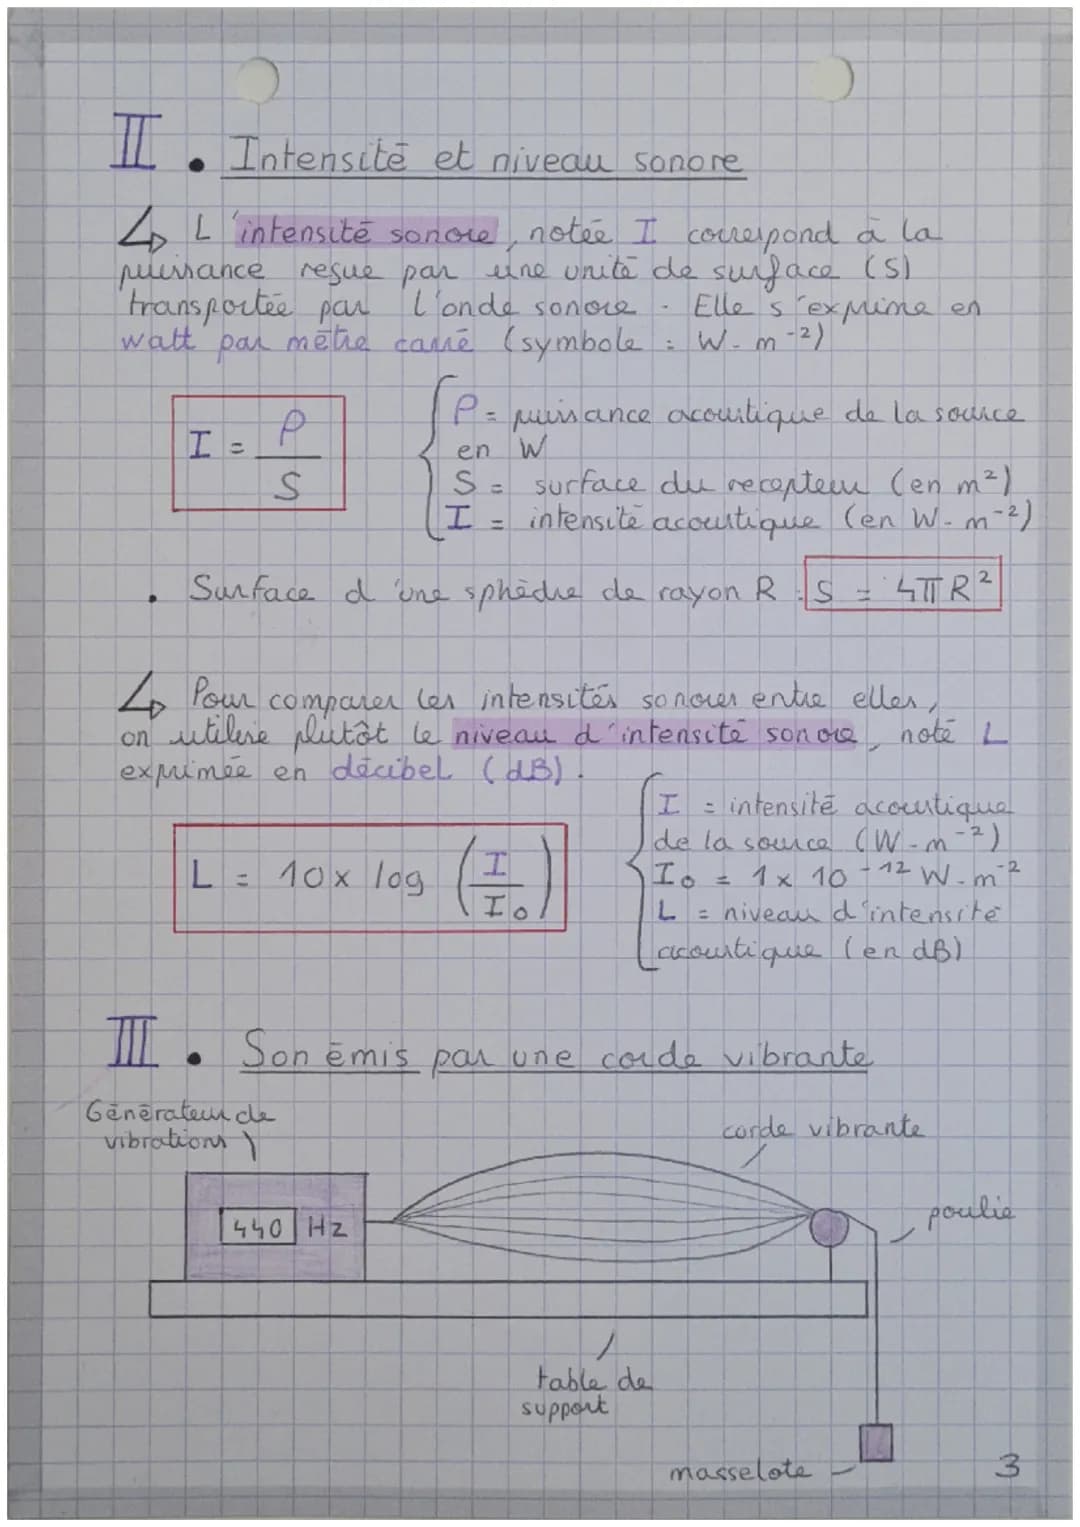 II. Intensité et niveau sonore
↳ L'intensité sonore, notée I correspond à la
puissance reçue par une unité de surface (S)
transportée par l'onde sonore. Elle s'exprime en
watt par mètre carré (symbole : W.m⁻²)
I = P/S
P = puissance acoustique de la source
en W
S = surface du recepteur (en m²)
I = intensité acoustique (en W.m⁻²)
• Surface d'une sphèdre de rayon R : S = 4πR²
↳ Pour comparer les intensités sonores entre elles,
on utilise plutôt le niveau d'intensité sonore, noté L
exprimée en décibel (dB).
L = 10 x log (I/I₀)
I = intensité acoustique
de la source (W.m⁻²)
I₀ = 1 x 10⁻¹² W.m⁻²
L = niveau d'intensité
acoustique (en dB)
III. Son émis par une corde vibrante
Générateur de
vibrations
corde vibrante
440 Hz
poulie
table de
support
masselote
3